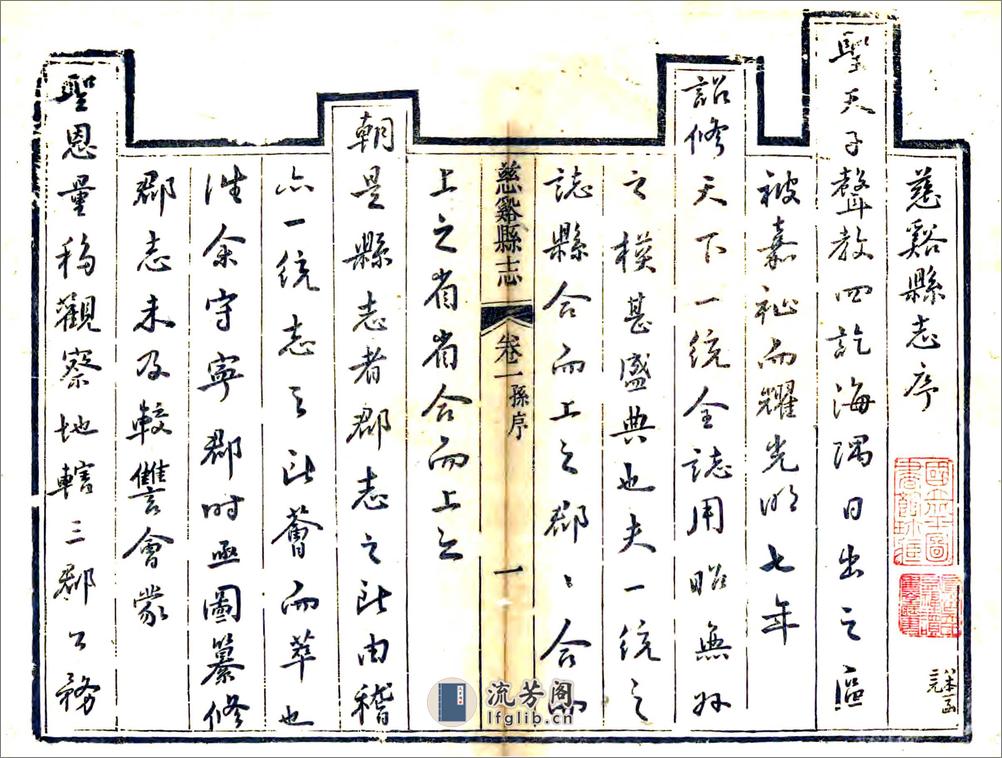 慈谿縣志序
聖天子聲教四訖海隅日出之區
被嘉祉而耀光明七年
詔修天下一統全誌用昭無外
之模甚盛典也夫一統之
誌縣合而上之郡郡〻合而
慈谿縣志 卷一 孫序 一
上之省省合而上之
朝是縣志者郡志之所由稽
亦一統志之所薈而萃也
浟余守寧郡時亟圖纂修
郡志未及較讐會蒙
聖恩量移觀察地轄三郡公務
國立北平圖書館珍藏
流芳阁
lfglib.cn